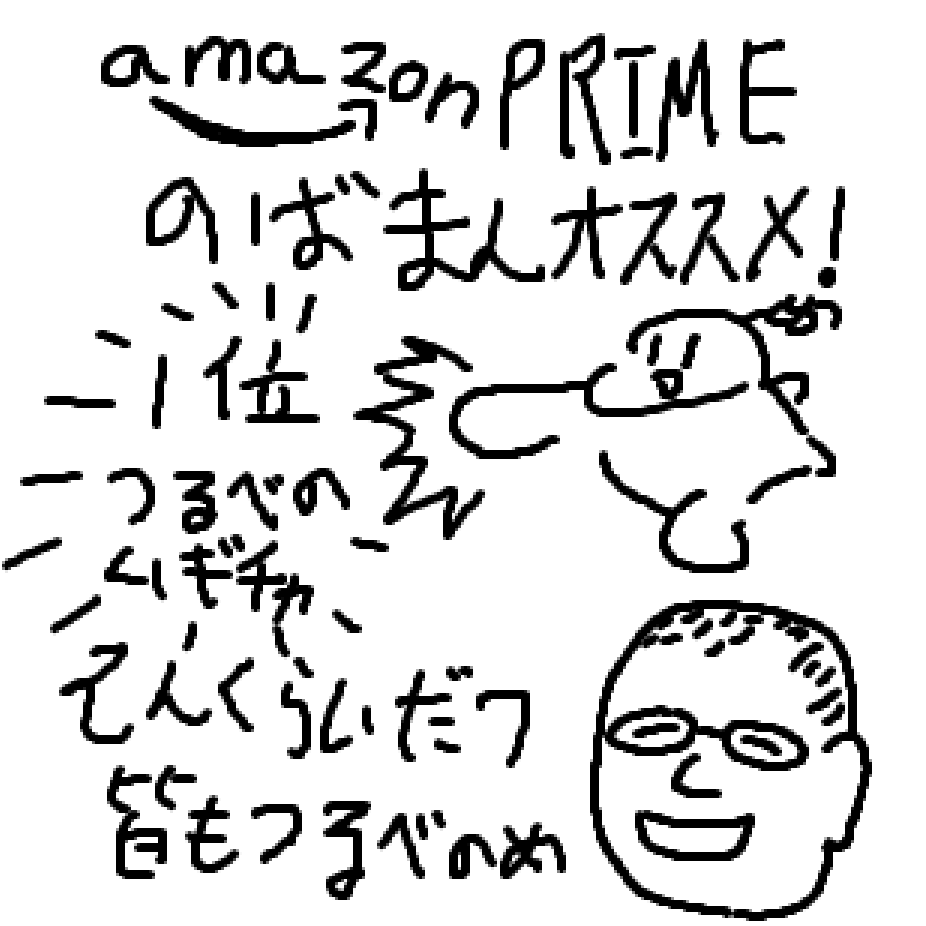 amazon PRIME
のばまんオススメ!
1位
つるべの
くいギチャ
てんくらいだつ
皆もつるべのめ